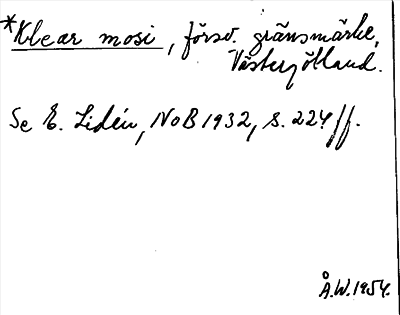 *Klear mosi, försv. gränsmärke,
Västergötland.
Se E. Lidén, NoB 1932, s. 224 ff.
Å.W. 1954.